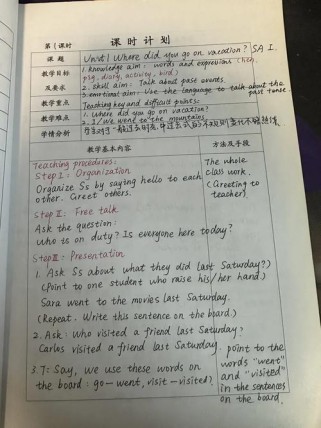 第1课时
课时计划
课题
Unit 1 Where did you go on vacation? SA 1.
教学目标
及要求
1. knowledge aim: words and expressions (hen,
pig, diary, activity, bird)
2. skill aim: Talk about past events
3. emotional aim: Use the language to talk about the
past tense
教学重点
Teaching key and difficult points:
教学难点
1. Where did you go on vacation?
2. I/We went to the mountains.
学情分析
学生对于一般过去时态中过去式的不规则变化不够熟悉
教学基本内容
方法及手段
Teaching procedures:
Step I: Organization
Organize Ss by saying hello to each
other. Greet others.
The whole
class work.
(Greeting to
teacher)
Step II: Free talk
Ask the question:
who is on duty? Is everyone here today?
Step III: Presentation
1. Ask Ss about what they did last Saturday?)
(Point to one student who raise his/her hand)
Sara went to the movies last Saturday.
(Repeat. Write this sentence on the board)
2. Ask: Who visited a friend last Saturday?
Carlos visited a friend last Saturday.
3. T: Say, we use these words on
the board: go-went, visit-visited?
point to the
words "went"
and "visited"
in the sentences
on the board.